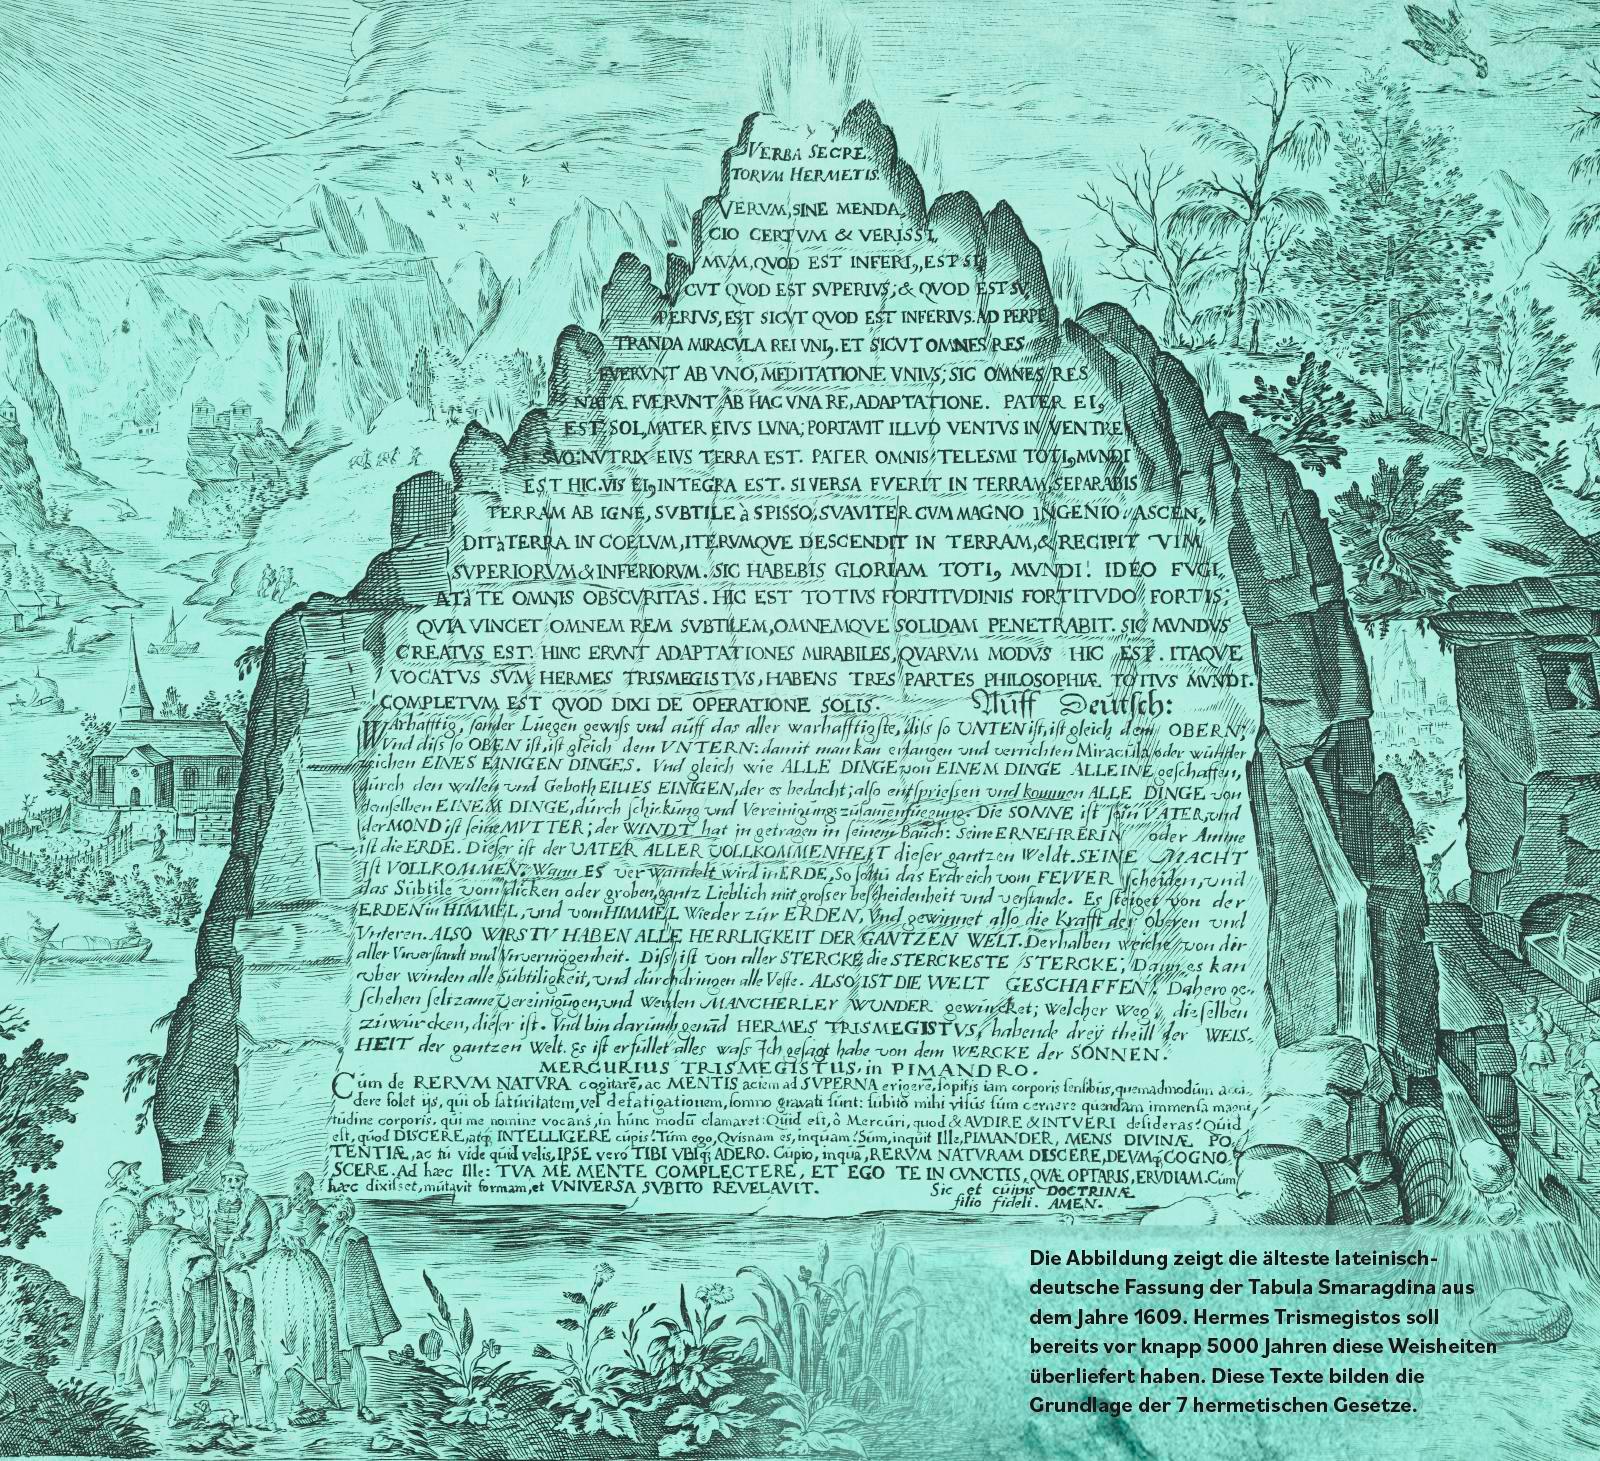 VERBA SECRE,
TORVM HERMETIS.
VERVM, SINE MENDA,
CIO CERTVM & VERISSI,
MVM, QVOD EST INFERI,, EST SI,
CVT QVOD EST SVPERIVS; & QVOD EST SV,
PERIVS, EST SICVT QVOD EST INFERIVS. AD PERPE
TRANDA MIRACVLA REI VNI,. ET SICVT OMNES RES
FVERVNT AB VNO, MEDITATIONE VNIVS; SIC OMNES RES
NATÆ FVERVNT AB HAC VNA RE, ADAPTATIONE. PATER EI,
EST SOL, MATER EIVS LVNA; PORTAVIT ILLVD VENTVS IN VENTRE
SVO: NVTRIX EIVS TERRA EST. PATER OMNIS TELESMI TOTI, MVNDI
EST HIC. VIS EI, INTEGRA EST. SI VERSA FVERIT IN TERRAM, SEPARABIS
TERRAM AB IGNE, SVBTILE à SPISSO, SVAVITER CVM MAGNO INGENIO. ASCEN,
DIT à TERRA IN COELVM, ITERVMQVE DESCENDIT IN TERRAM, & RECIPIT VIM
SVPERIORVM & INFERIORVM. SIC HABEBIS GLORIAM TOTI, MVNDI. IDEO FVGI,
ATà TE OMNIS OBSCVRITAS. HIC EST TOTIVS FORTITVDINIS FORTITVDO FORTIS;
QVIA VINCET OMNEM REM SVBTILEM, OMNEMQVE SOLIDAM PENETRABIT. SIC MVNDVS
CREATVS EST. HINC ERVNT ADAPTATIONES MIRABILES, QVARVM MODVS HIC EST. ITAQVE
VOCATVS SVM HERMES TRISMEGISTVS, HABENS TRES PARTES PHILOSOPHIÆ TOTIVS MVNDI.
COMPLETVM EST QVOD DIXI DE OPERATIONE SOLIS. Auff Deutsch:
WArhafftig, sonder Luegen gewiss und auff das aller warhafftigste, diss so UNTEN ist, ist gleich dem OBERN;
Vnd diss so OBEN ist, ist gleich dem VNTERN: damit man kan erlangen und verrichten Miracula oder wunder
zeichen EINES EINIGEN DINGES. Vnd gleich wie ALLE DINGE von EINEM DINGE ALLEINE geschaffen,
durch den willen und Geboth EINES EINIGEN, der es bedacht; also entspriessen und kommen ALLE DINGE von
demselben EINEM DINGE, durch schickung und Vereinigung zusammenfuegung. Die SONNE ist sein VATER, und
der MOND ist seine MVTTER; der WINDT hat jn getragen in seinem Bauch: Seine ERNEHRERIN oder Amme
ist die ERDE. Dieser ist der VATER ALLER VOLLKOMMENHEIT dieser gantzen Weldt. SEINE MACHT
Ist VOLLKOMMEN; Wann ES verwandelt wird in ERDE, So soltu das Erdreich vom FEVVER scheiden, und
das Subtile vom dicken oder groben, gantz Lieblich mit grosser bescheidenheit und verstande. Es steiget von der
ERDEN in HIMMEL, und vom HIMMEL Wieder zur ERDEN, Vnd gewinnet also die Krafft der Oberen und
Vnteren. ALSO WIRSTV HABEN ALLE HERRLIGKEIT DER GANTZEN WELT. Derhalben weiche von dir
aller Vnverstandt und Vnvermögenheit. Diss ist von aller STERCKE die STERCKESTE STERCKE; Dann es kan
uber winden alle Subtiligkeit, und durchdringen alle Veste. ALSO IST DIE WELT GESCHAFFEN. Dahero ge,
schehen seltzame Vereinigungen, und werden MANCHERLEY WUNDER gewürcket; Welcher Weg, dieselben
zuwürcken, dieser ist. Vnd bin darumb genād HERMES TRISMEGISTVS, habende drey theill der WEIS,
HEIT der gantzen Welt. Es ist erfüllet alles wass Ich gesagt habe von dem WERCKE der SONNEN.
MERCURIUS TRISMEGISTUS, in PIMANDRO.
Cum de RERVM NATVRA cogitarē, ac MENTIS aciem ad SVPERNA erigere, sopitis iam corporis sensibus, quemadmodum acci,
dere solet ijs, qui ob saturitatem, vel defatigationem, somno gravati sunt: subito mihi visus sum cernere quendam immensa magni
tudine corporis, qui me nomine vocans, in hunc modū clamaret: Quid est, ô Mercuri, quod & AVDIRE & INTVERI desideras? Quid
est, quod DISCERE, atq, INTELLIGERE cupis? Tum ego, Quisnam es, inquam? Sum, inquit Ille, PIMANDER, MENS DIVINÆ PO,
TENTIÆ, ac tu vide quid velis, IPSE vero TIBI VBIq; ADERO. Cupio, inquā, RERVM NATVRAM DISCERE, DEVMq; COGNO,
SCERE. Ad hæc Ille: TVA ME MENTE COMPLECTERE, ET EGO TE IN CVNCTIS, QVÆ OPTARIS, ERVDIAM. Cum
hæc dixisset, mutavit formam, et VNIVERSA SVBITO REVELAVIT.
Sic et cuius DOCTRINÆ
filio fideli. AMEN.
Die Abbildung zeigt die älteste lateinisch-
deutsche Fassung der Tabula Smaragdina aus
dem Jahre 1609. Hermes Trismegistos soll
bereits vor knapp 5000 Jahren diese Weisheiten
überliefert haben. Diese Texte bilden die
Grundlage der 7 hermetischen Gesetze.